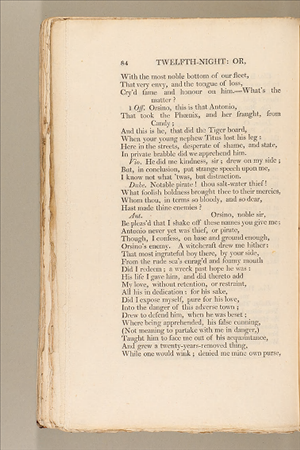 84 TWELFTH-NIGHT: OR,
With the most noble bottom of our fleet,
That very envy, and the tongue of loss,
Cry'd fame and honour on him.—What's the
matter?
1 Off. Orsino, this is that Antonio,
That took the Phœnix, and her fraught, from
Candy;
And this is he, that did the Tiger board,
When your young nephew Titus lost his leg:
Here in the streets, desperate of shame, and state,
In private brabble did we apprehend him.
Vio. He did me kindness, sir; drew on my side;
But, in conclusion, put strange speech upon me,
I know not what 'twas, but distraction.
Duke. Notable pirate! thou salt-water thief!
What foolish boldness brought thee to their mercies,
Whom thou, in terms so bloody, and so dear,
Hast made thine enemies?
Ant. Orsino, noble sir,
Be pleas'd that I shake off these names you give me:
Antonio never yet was thief, or pirate,
Though, I confess, on base and ground enough,
Orsino's enemy. A witchcraft drew me hither:
That most ingrateful boy there, by your side,
From the rude sea's enrag'd and foamy mouth
Did I redeem; a wreck past hope he was:
His life I gave him, and did thereto add
My love, without retention, or restraint,
All his in dedication: for his sake,
Did I expose myself, pure for his love,
Into the danger of this adverse town;
Drew to defend him, when he was beset;
Where being apprehended, his false cunning,
(Not meaning to partake with me in danger,)
Taught him to face me out of his acquaintance,
And grew a twenty-years-removed thing,
While one would wink; denied me mine own purse,